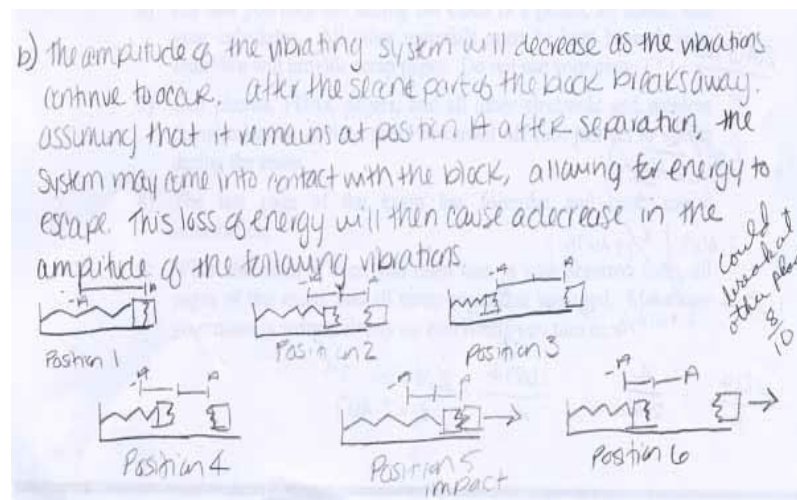 b) The amplitude of the vibrating system will decrease as the vibrations
continue to occur. after the second part of the block breaks away.
assuming that it remains at position A after separation, the
system may come into contact with the block, allowing for energy to
escape. This loss of energy will then cause a decrease in the
amplitude of the following vibrations
could
break at
other
8/10
-A A
-A A
-A A
Position 1
Position 2
Position 3
-A A
-A A
-A A
Position 4
Position 5
impact
Position 6